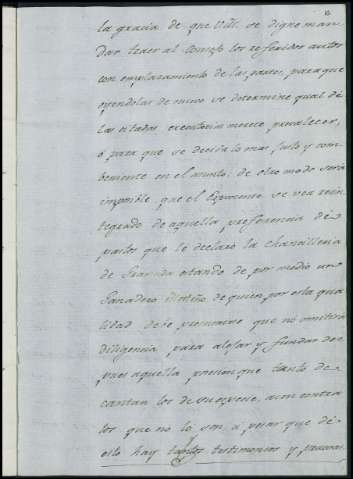 la gracia de que V.M. se digne man-
dar traer al Consejo los referidos autos
con emplazamiento de las partes, para que
oyendolas de nuevo se determine qual de
las citadas executorias merece prevalecer,
o para que se decida lo mas justo y com-
beniente en el asunto; de otro modo seria
imposible que el Exponente se vea rein-
tegrado de aquella preferencia de
pastos que le declaró la Chancilleria
de Granada estando de por medio un
Ganadero de quien por esta qua-
lidad debe presumirse que no omitirá
diligencia para alejar y fundar des-
pues aquella posesion que tanto de-
cantan los de su especie, aun contra
los que no lo son, a pesar que de
ello hay tantos testimonios y pruevas